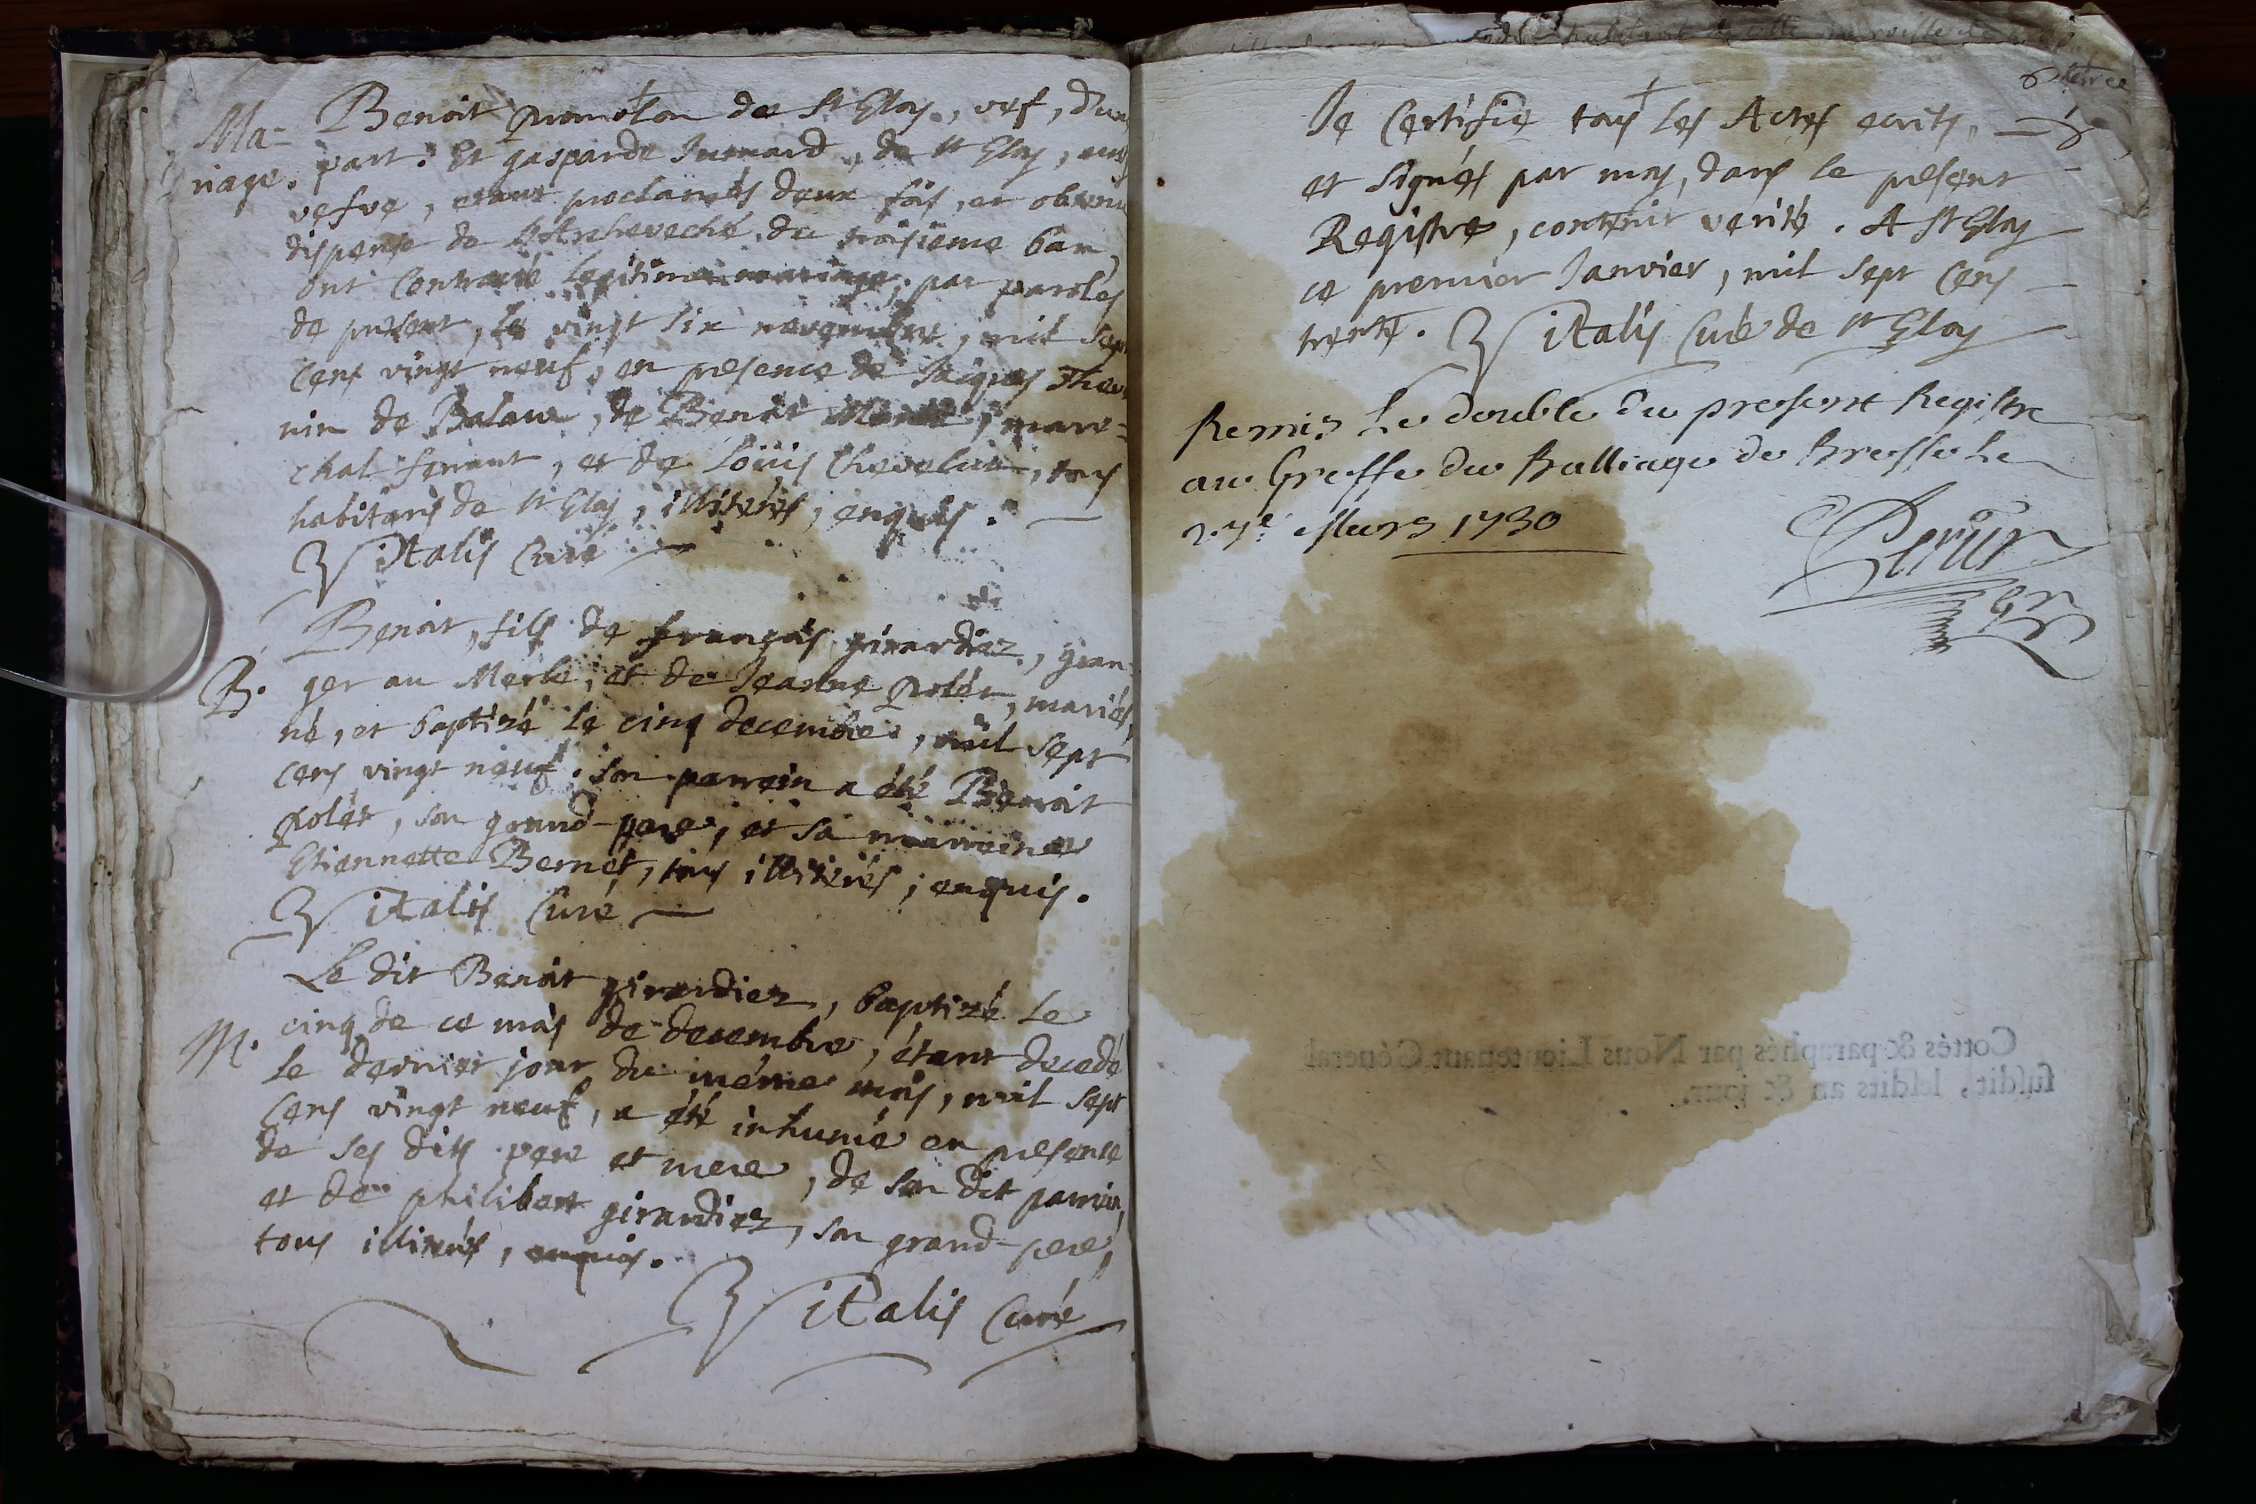 Ma-
riage.
Benoit de St Eloy, vef, d'une
part. Et gasparde de St Eloy,
vefve, etant proclamés deux fois, et obtenu
dispense de l'Archeveché, du troisieme ban,
ont Contracté legitime mariage, par paroles
de present, le vingt six novembre, mil sept
cens vingt neuf, en presence de Jâques Theve
nin de Balaure, de Benoit Morel, mare=
chal ferrant, et de Loüis Chevelu, tous
habitans de St Eloy, illiterés, enquis.
Vitalis Curé
B.
Benoit, fils de françois girardier, gran-
ger au Merle, et de Jeanne Rolét, mariés,
né, et baptizé le cinq decembre, mil sept
cens vingt neuf. Son parrein a été Benoit
Rolét, son grand-pere, et sa marreine
Etiennette Bernét, tous illiterés, enquis.
Vitalis Curé
M.
Le dit Benoit girardier, baptizé le
cinq de ce mois de decembre, étant decedé
le dernier jour du même mois, mil sept
cens vingt neuf, a été inhumé en presence
de ses dits pere et mere, de son dit parrein,
et de philibert girardier, son grand-pere,
tous illiterés, enquis.
Vitalis Curé
Je Certifie tous les Actes ecrits,
et signés par moy, dans le present
Registre, contenir verité. A St Eloy
ce premier Janvier, mil sept cens
trente. Vitalis Curé de St Eloy
Remis Le double du present Registre
au Greffe du Balliage de Bresse Le
27e Mars 1730
Cottés & paraphés par Nous Lieutenant Géneral
susdit, lesdits an & jour.